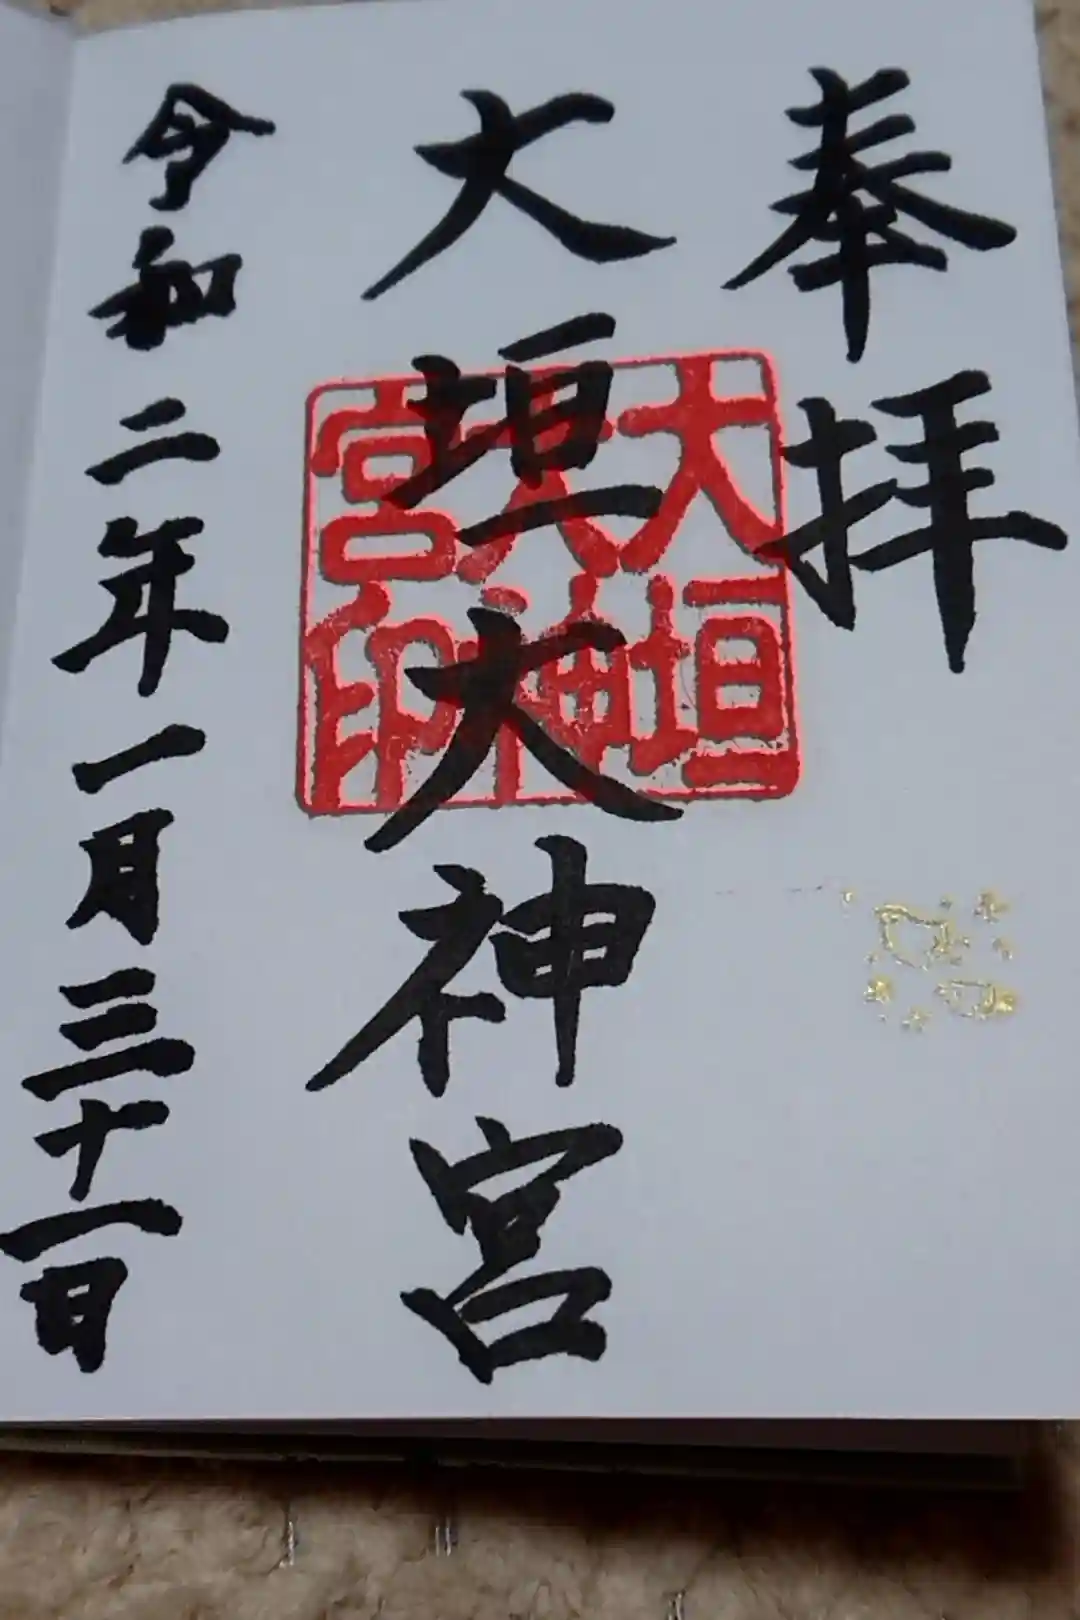 奉拝
大垣大神宮
大垣
大神
宮印
令和二年一月三十一日